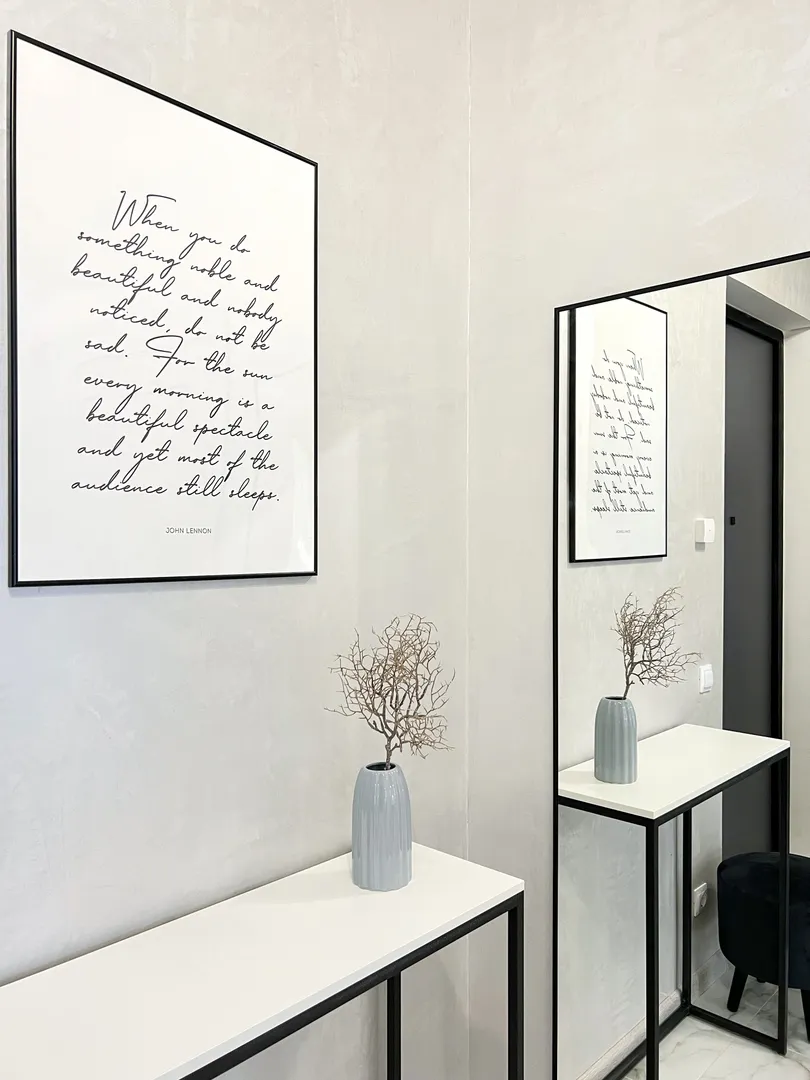 When you do
something noble and
beautiful and nobody
noticed, do not be
sad. For the sun
every morning is a
beautiful spectacle
and yet most of the
audience still sleeps.
JOHN LENNON